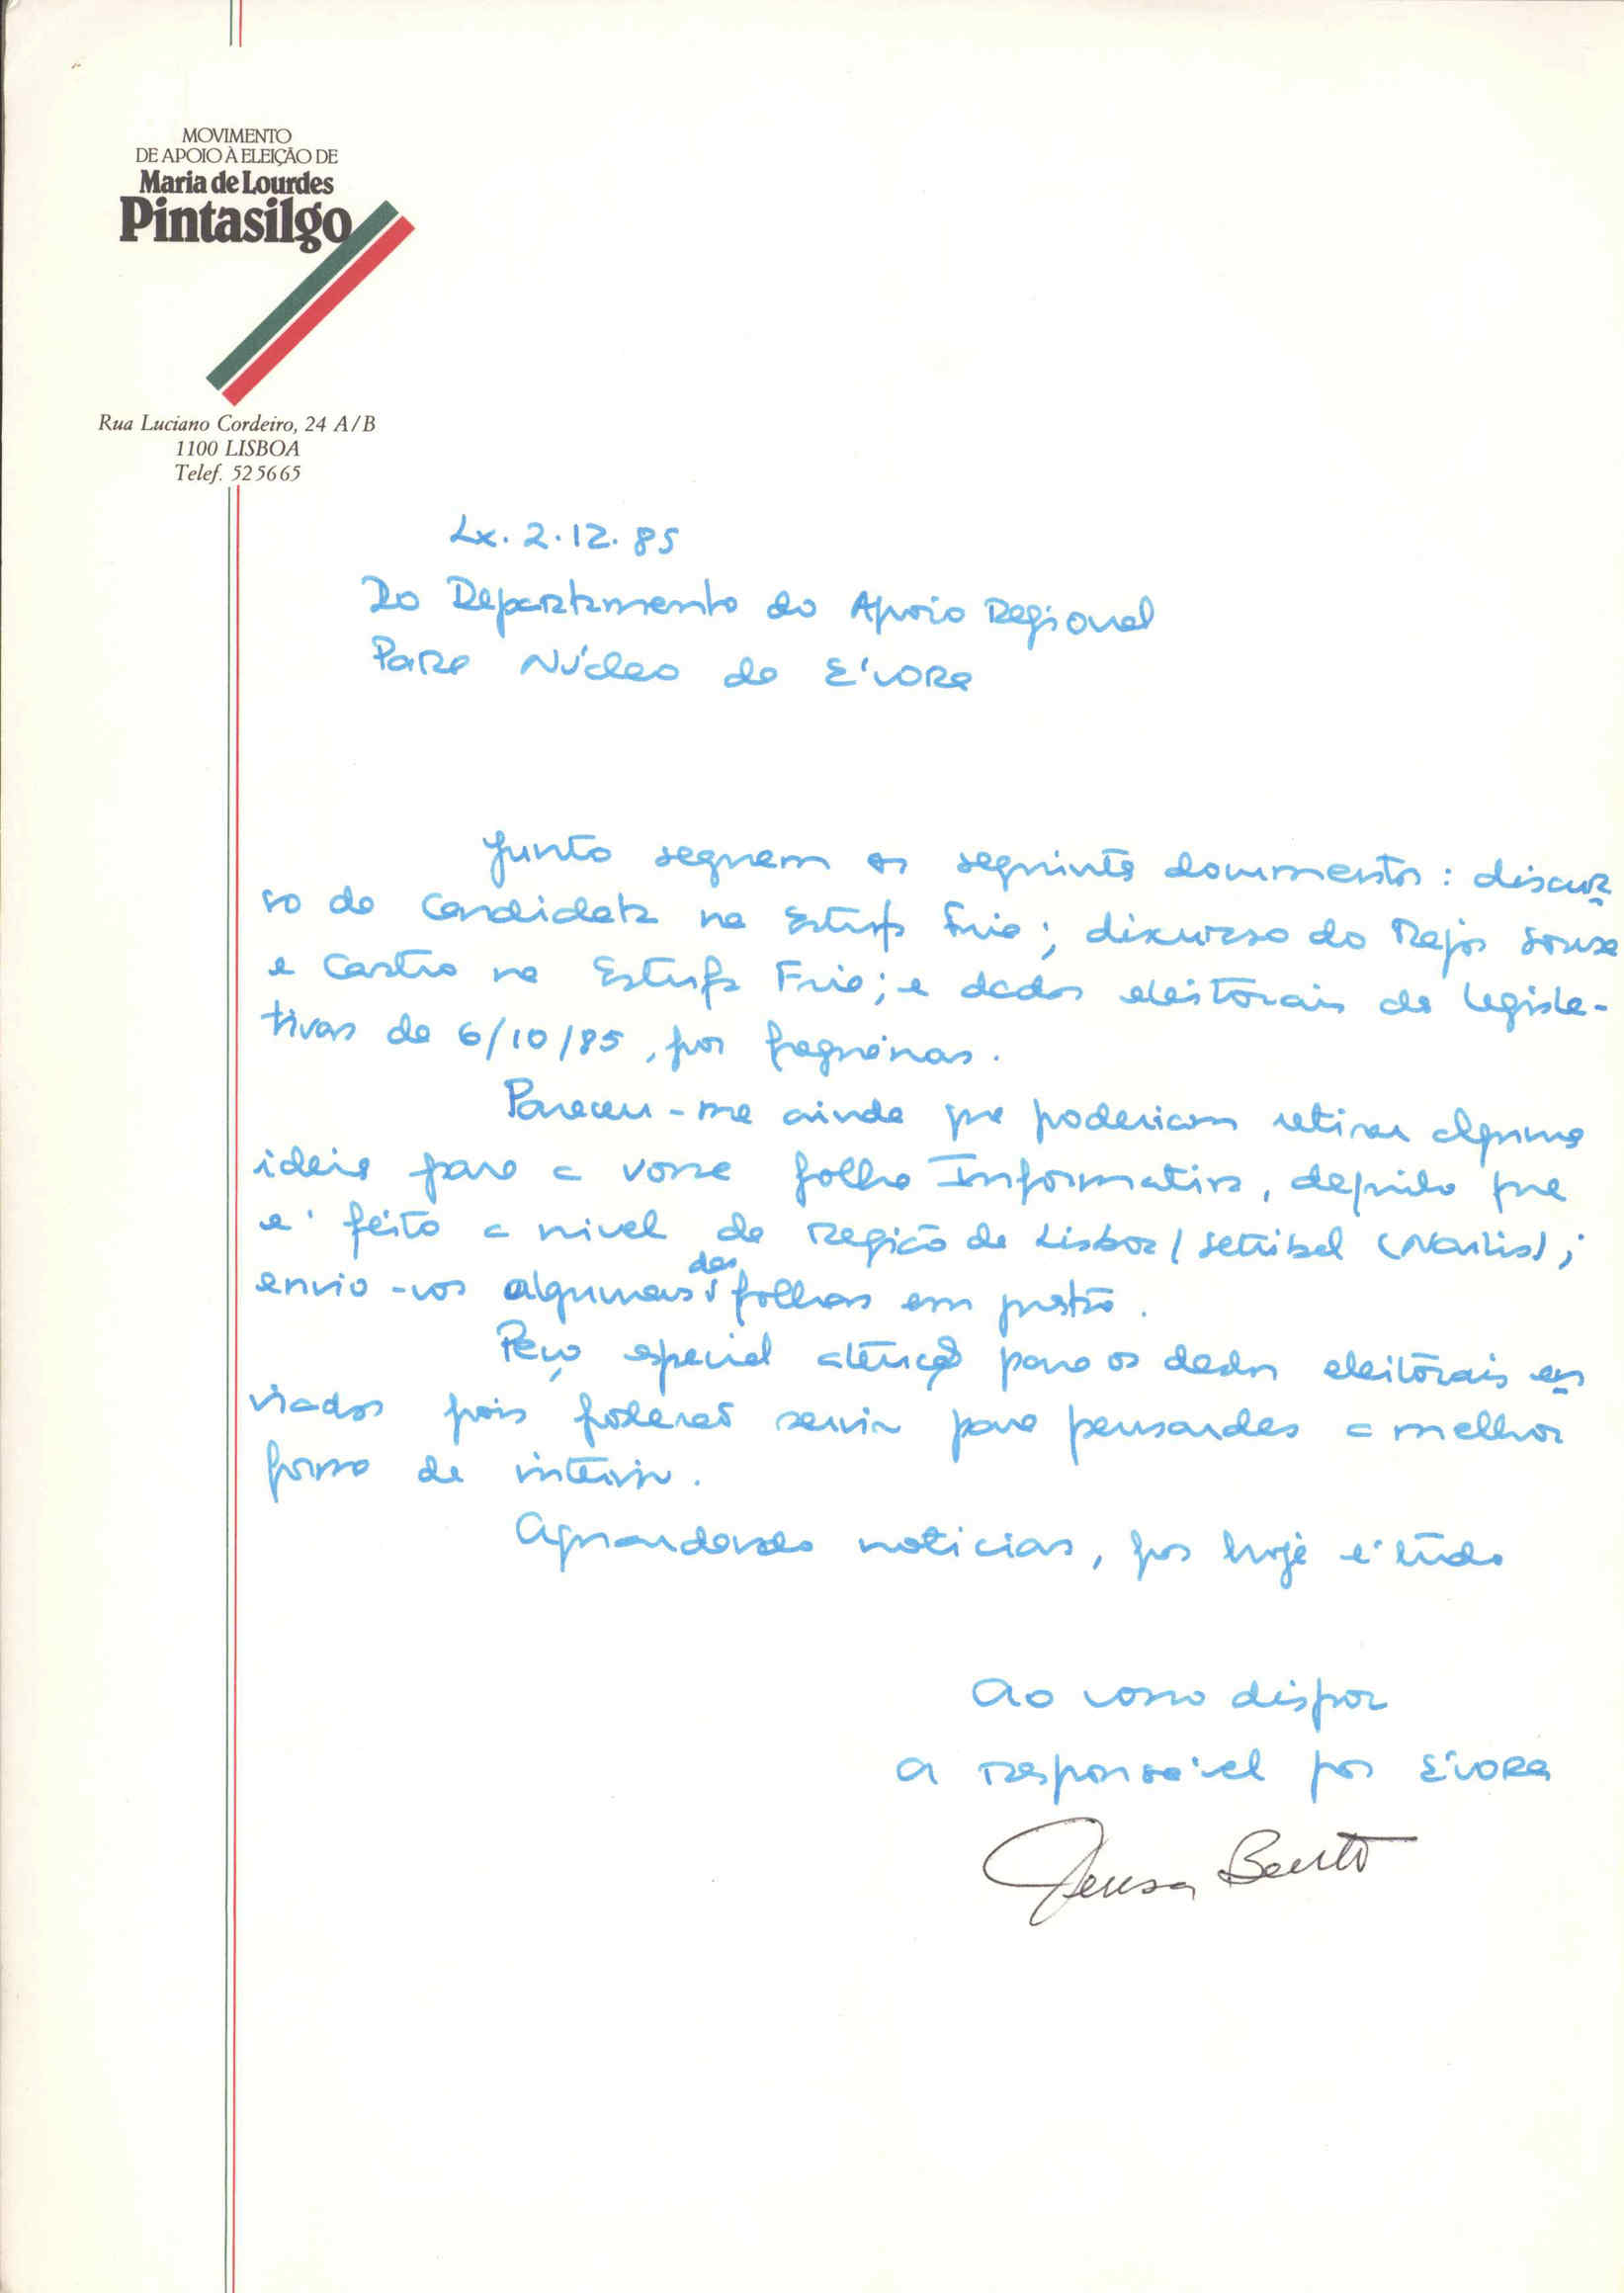 MOVIMENTO
DE APOIO À ELEIÇÃO DE
Maria de Lourdes
Pintasilgo
Rua Luciano Cordeiro, 24 A/B
1100 LISBOA
Telef. 525665
Lx. 2.12.85
Do Departamento do Apoio Regional
Para Núcleo de Évora
Junto seguem os seguintes documentos: discur
so da Candidata na Estufa Fria; discurso do Major Sousa
e Castro na Estufa Fria; e dados eleitorais das legisla-
tivas de 6/10/85, por freguesias.
Pareceu-me ainda que poderiam retirar algumas
ideias para a vossa folha Informativa, daquilo que
é feito a nível da Região de Lisboa/Setúbal
envio-vos algumas das folhas em questão.
Peço especial atenção para os dados eleitorais en
viados pois poderão servir para pensardes a melhor
forma de intervir.
Aguardando noticias, por hoje é tudo
Ao vosso dispor
A responsável por Évora
Teresa Bento